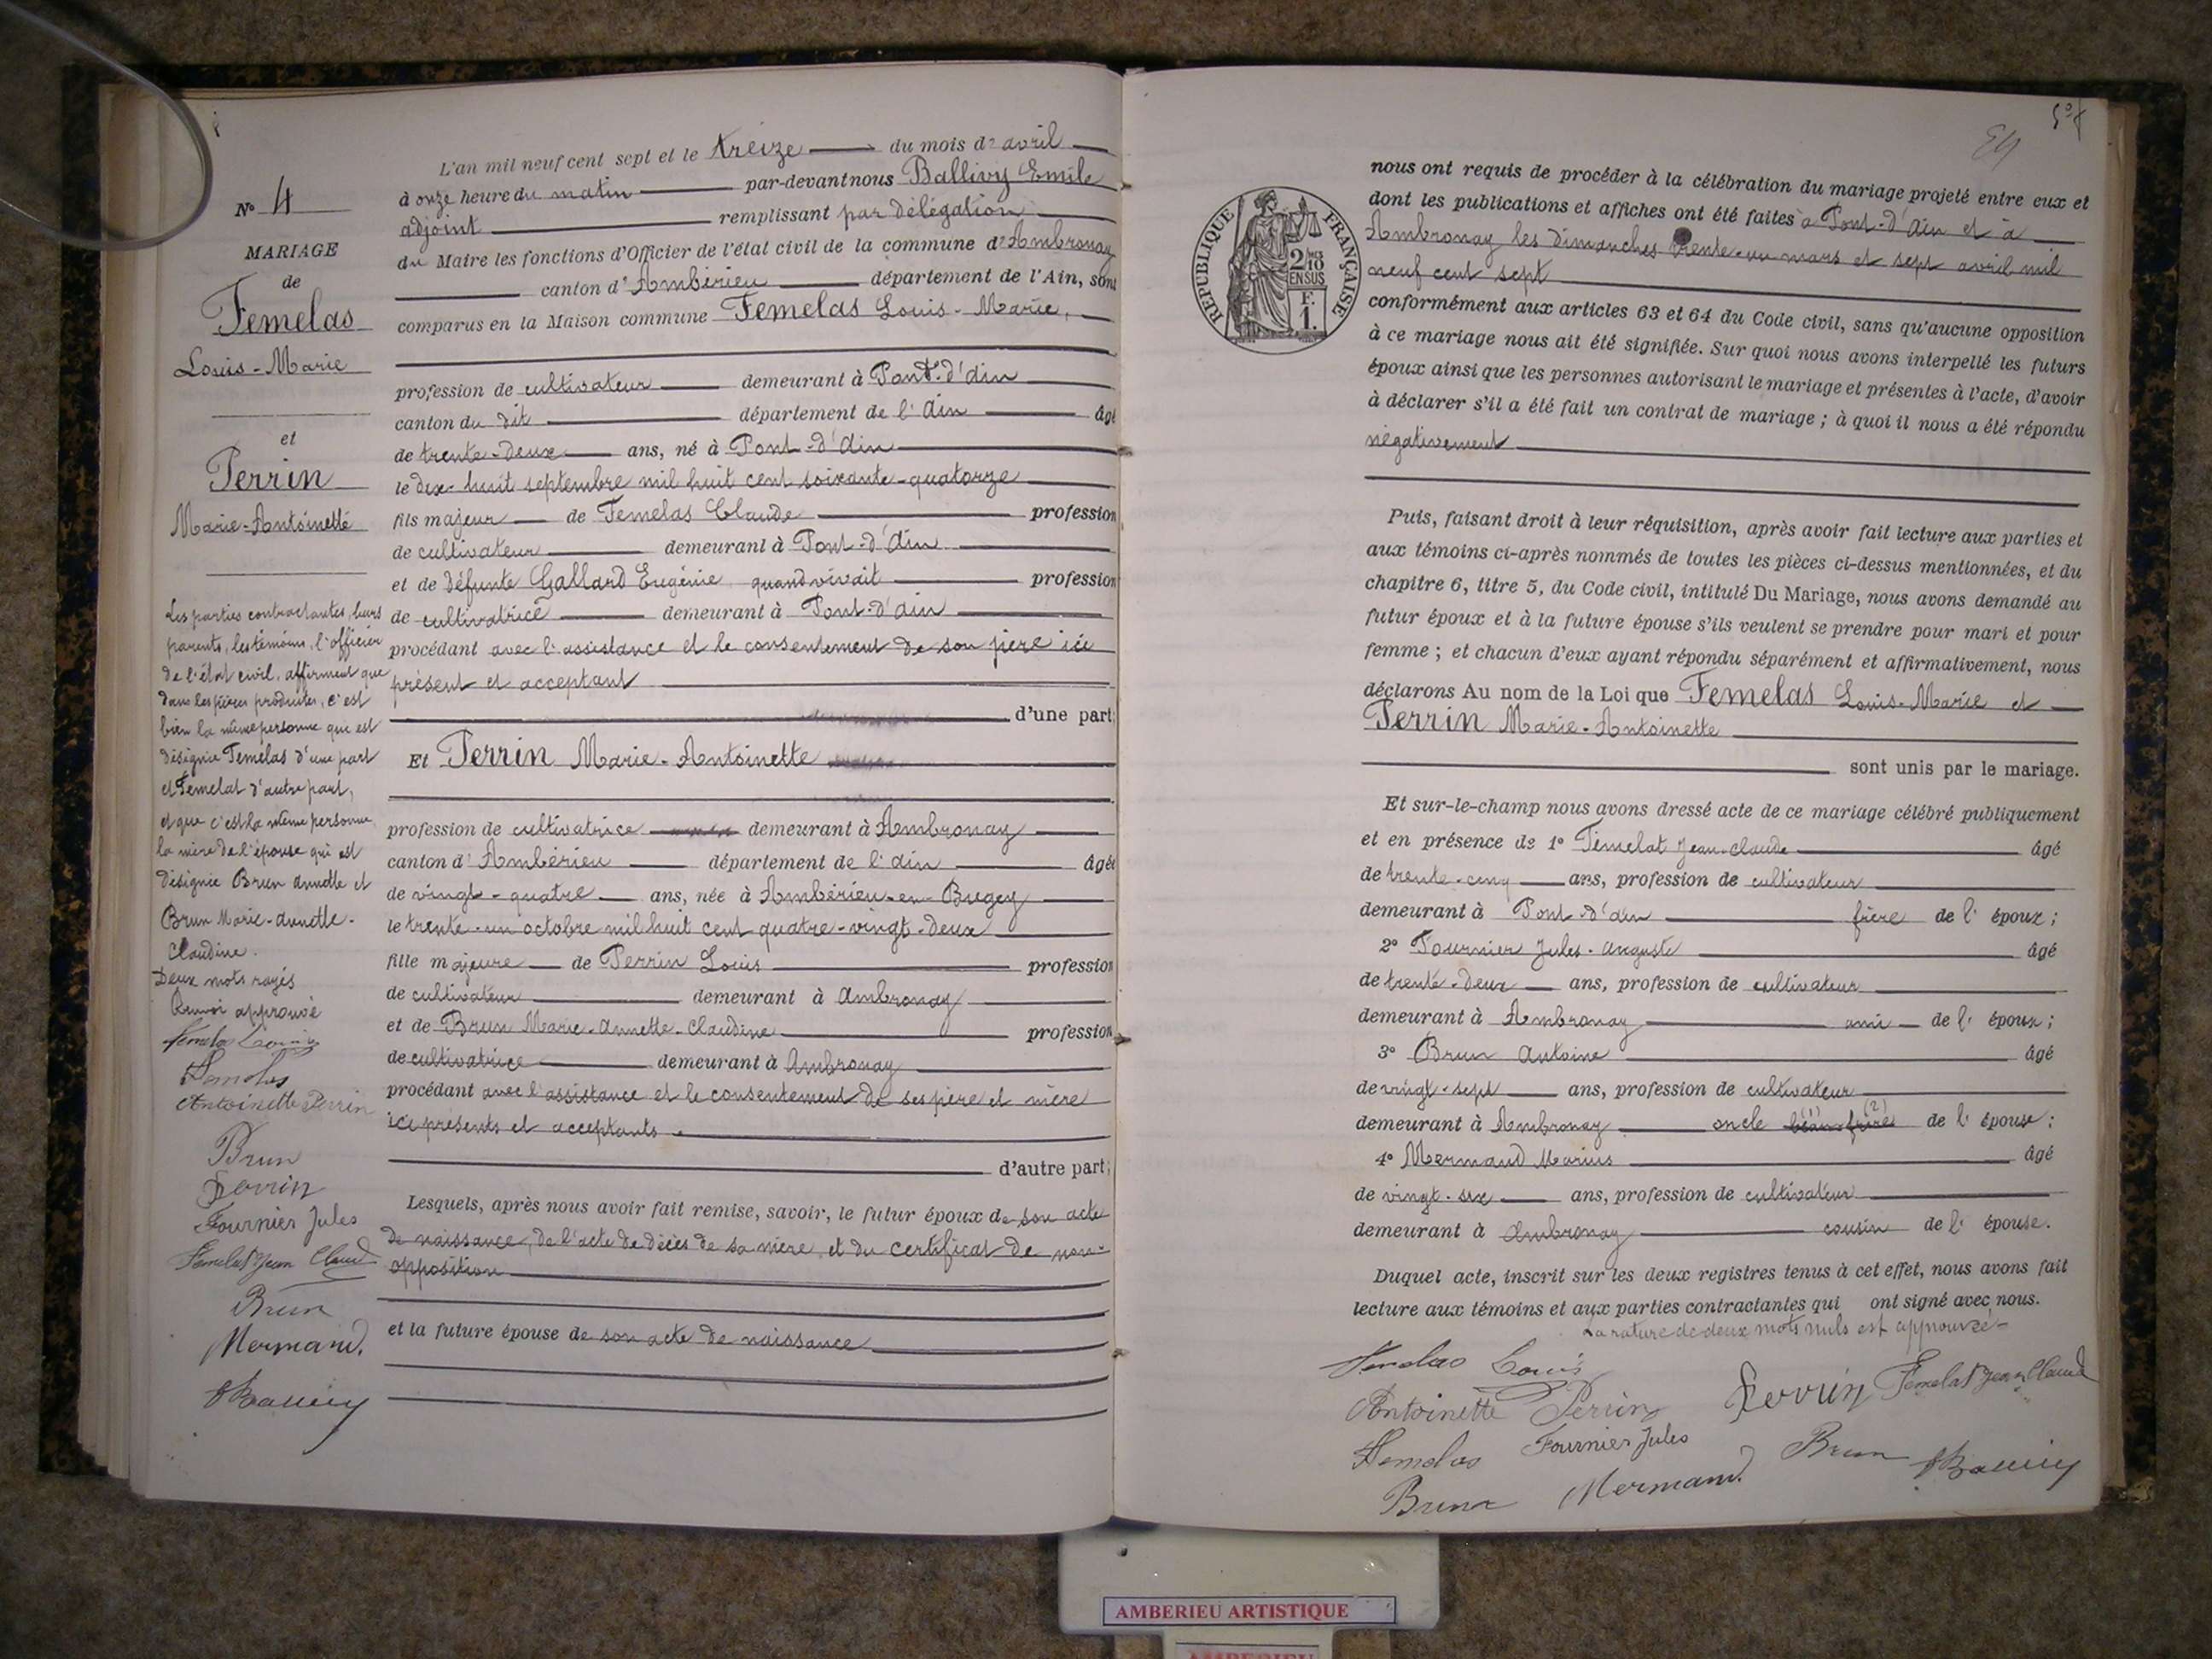 N° 4
MARIAGE
de
Femelas
Louis-Marie
et
Perrin
Marie-Antoinette
Les parties contractantes, leurs
parents, les témoins, l'officier
de l'état civil, affirment que
dans les pièces produites, c'est
bien la même personne que est
désignée Femelas d'une part
et Femelat d'autre part,
et que c'est la même personne
la mère de l'épouse qui est
désignée Brun Annette et
Brun Marie-Annette-
Claudine.
Deux mots rayés
Renvoi approuvé
Femelas Louis
Femelas
Antoinette Perrin
Brun
Perrin
Fournier Jules
Femelat Jean Claud
Brun
Mermand.
L'an mil neuf cent sept et le treize du mois d'avril
à onze heure du matin par-devant nous Ballivy Emile
adjoint remplissant par délégation
du Maire les fonctions d'Officier de l'état civil de la commune d'Ambronay
canton d'Ambérieu département de l'Ain, sont
comparus en la Maison commune Femelas Louis-Marie,
profession de cultivateur demeurant à Pont-d'Ain
canton du dit département de l'Ain âgé
de trente-deux ans, né à Pont-d'Ain
le dix-huit septembre mil huit cent soixante-quatorze
fils majeur de Femelas Claude profession
de cultivateur demeurant à Pont-d'Ain
et de défunte Gallard Eugénie quand vivait profession
de cultivatrice demeurant à Pont-d'Ain
procédant avec l'assistance et le consentement de son père ici
présent et acceptant
d'une part;
Et Perrin Marie-Antoinette
profession de cultivatrice demeurant à Ambronay
canton d'Ambérieu département de l'Ain âgée
de vingt-quatre ans, née à Ambérieu-en-Bugey
le trente-un octobre mil huit cent quatre-vingt-deux
fille majeure de Perrin Louis profession
de cultivateur demeurant à Ambronay
et de Brun Marie-Annette-Claudine profession
de cultivatrice demeurant à Ambronay
procédant avec l'assistance et le consentement de ses père et mère
ici présents et acceptants.
d'autre part;
Lesquels, après nous avoir fait remise, savoir, le futur époux de son acte
de naissance, de l'acte de décès de sa mère, et du certificat de non-
opposition
et la future épouse de son acte de naissance
RÉPUBLIQUE FRANÇAISE
2/10
EN SUS
F.
1.
nous ont requis de procéder à la célébration du mariage projeté entre eux et
dont les publications et affiches ont été faites à Pont-d'Ain et à
Ambronay les dimanches trente-un mars et sept avril mil
neuf cent sept
conformément aux articles 63 et 64 du Code civil, sans qu'aucune opposition
à ce mariage nous ait été signifiée. Sur quoi nous avons interpellé les futurs
époux ainsi que les personnes autorisant le mariage et présentes à l'acte, d'avoir
à déclarer s'il a été fait un contrat de mariage; à quoi il nous a été répondu
négativement
Puis, faisant droit à leur réquisition, après avoir fait lecture aux parties et
aux témoins ci-après nommés de toutes les pièces ci-dessus mentionnées, et du
chapitre 6, titre 5, du Code civil, intitulé Du Mariage, nous avons demandé au
futur époux et à la future épouse s'ils veulent se prendre pour mari et pour
femme; et chacun d'eux ayant répondu séparément et affirmativement, nous
déclarons Au nom de la Loi que Femelas Louis-Marie et
Perrin Marie-Antoinette
sont unis par le mariage.
Et sur-le-champ nous avons dressé acte de ce mariage célébré publiquement
et en présence de 1° Femelat Jean-Claude âgé
de trente-cinq ans, profession de cultivateur
demeurant à Pont-d'Ain frère de l'époux;
2° Fournier Jules-Auguste âgé
de trente-deux ans, profession de cultivateur
demeurant à Ambronay ami de l'époux;
3° Brun Antoine âgé
de vingt-sept ans, profession de cultivateur
demeurant à Ambronay oncle beau-frère (1) (2) de l'épouse;
4° Mermand Marius âgé
de vingt-six ans, profession de cultivateur
demeurant à Ambronay cousin de l'épouse.
Duquel acte, inscrit sur les deux registres tenus à cet effet, nous avons fait
lecture aux témoins et aux parties contractantes qui ont signé avec nous.
La rature de deux mots nuls est approuvée
Femelas Louis
Antoinette Perrin
Perrin
Femelat Jean Claud
Femelas
Fournier Jules
Brun
Brun
Mermand.
AMBERIEU ARTISTIQUE
AMBERIEU